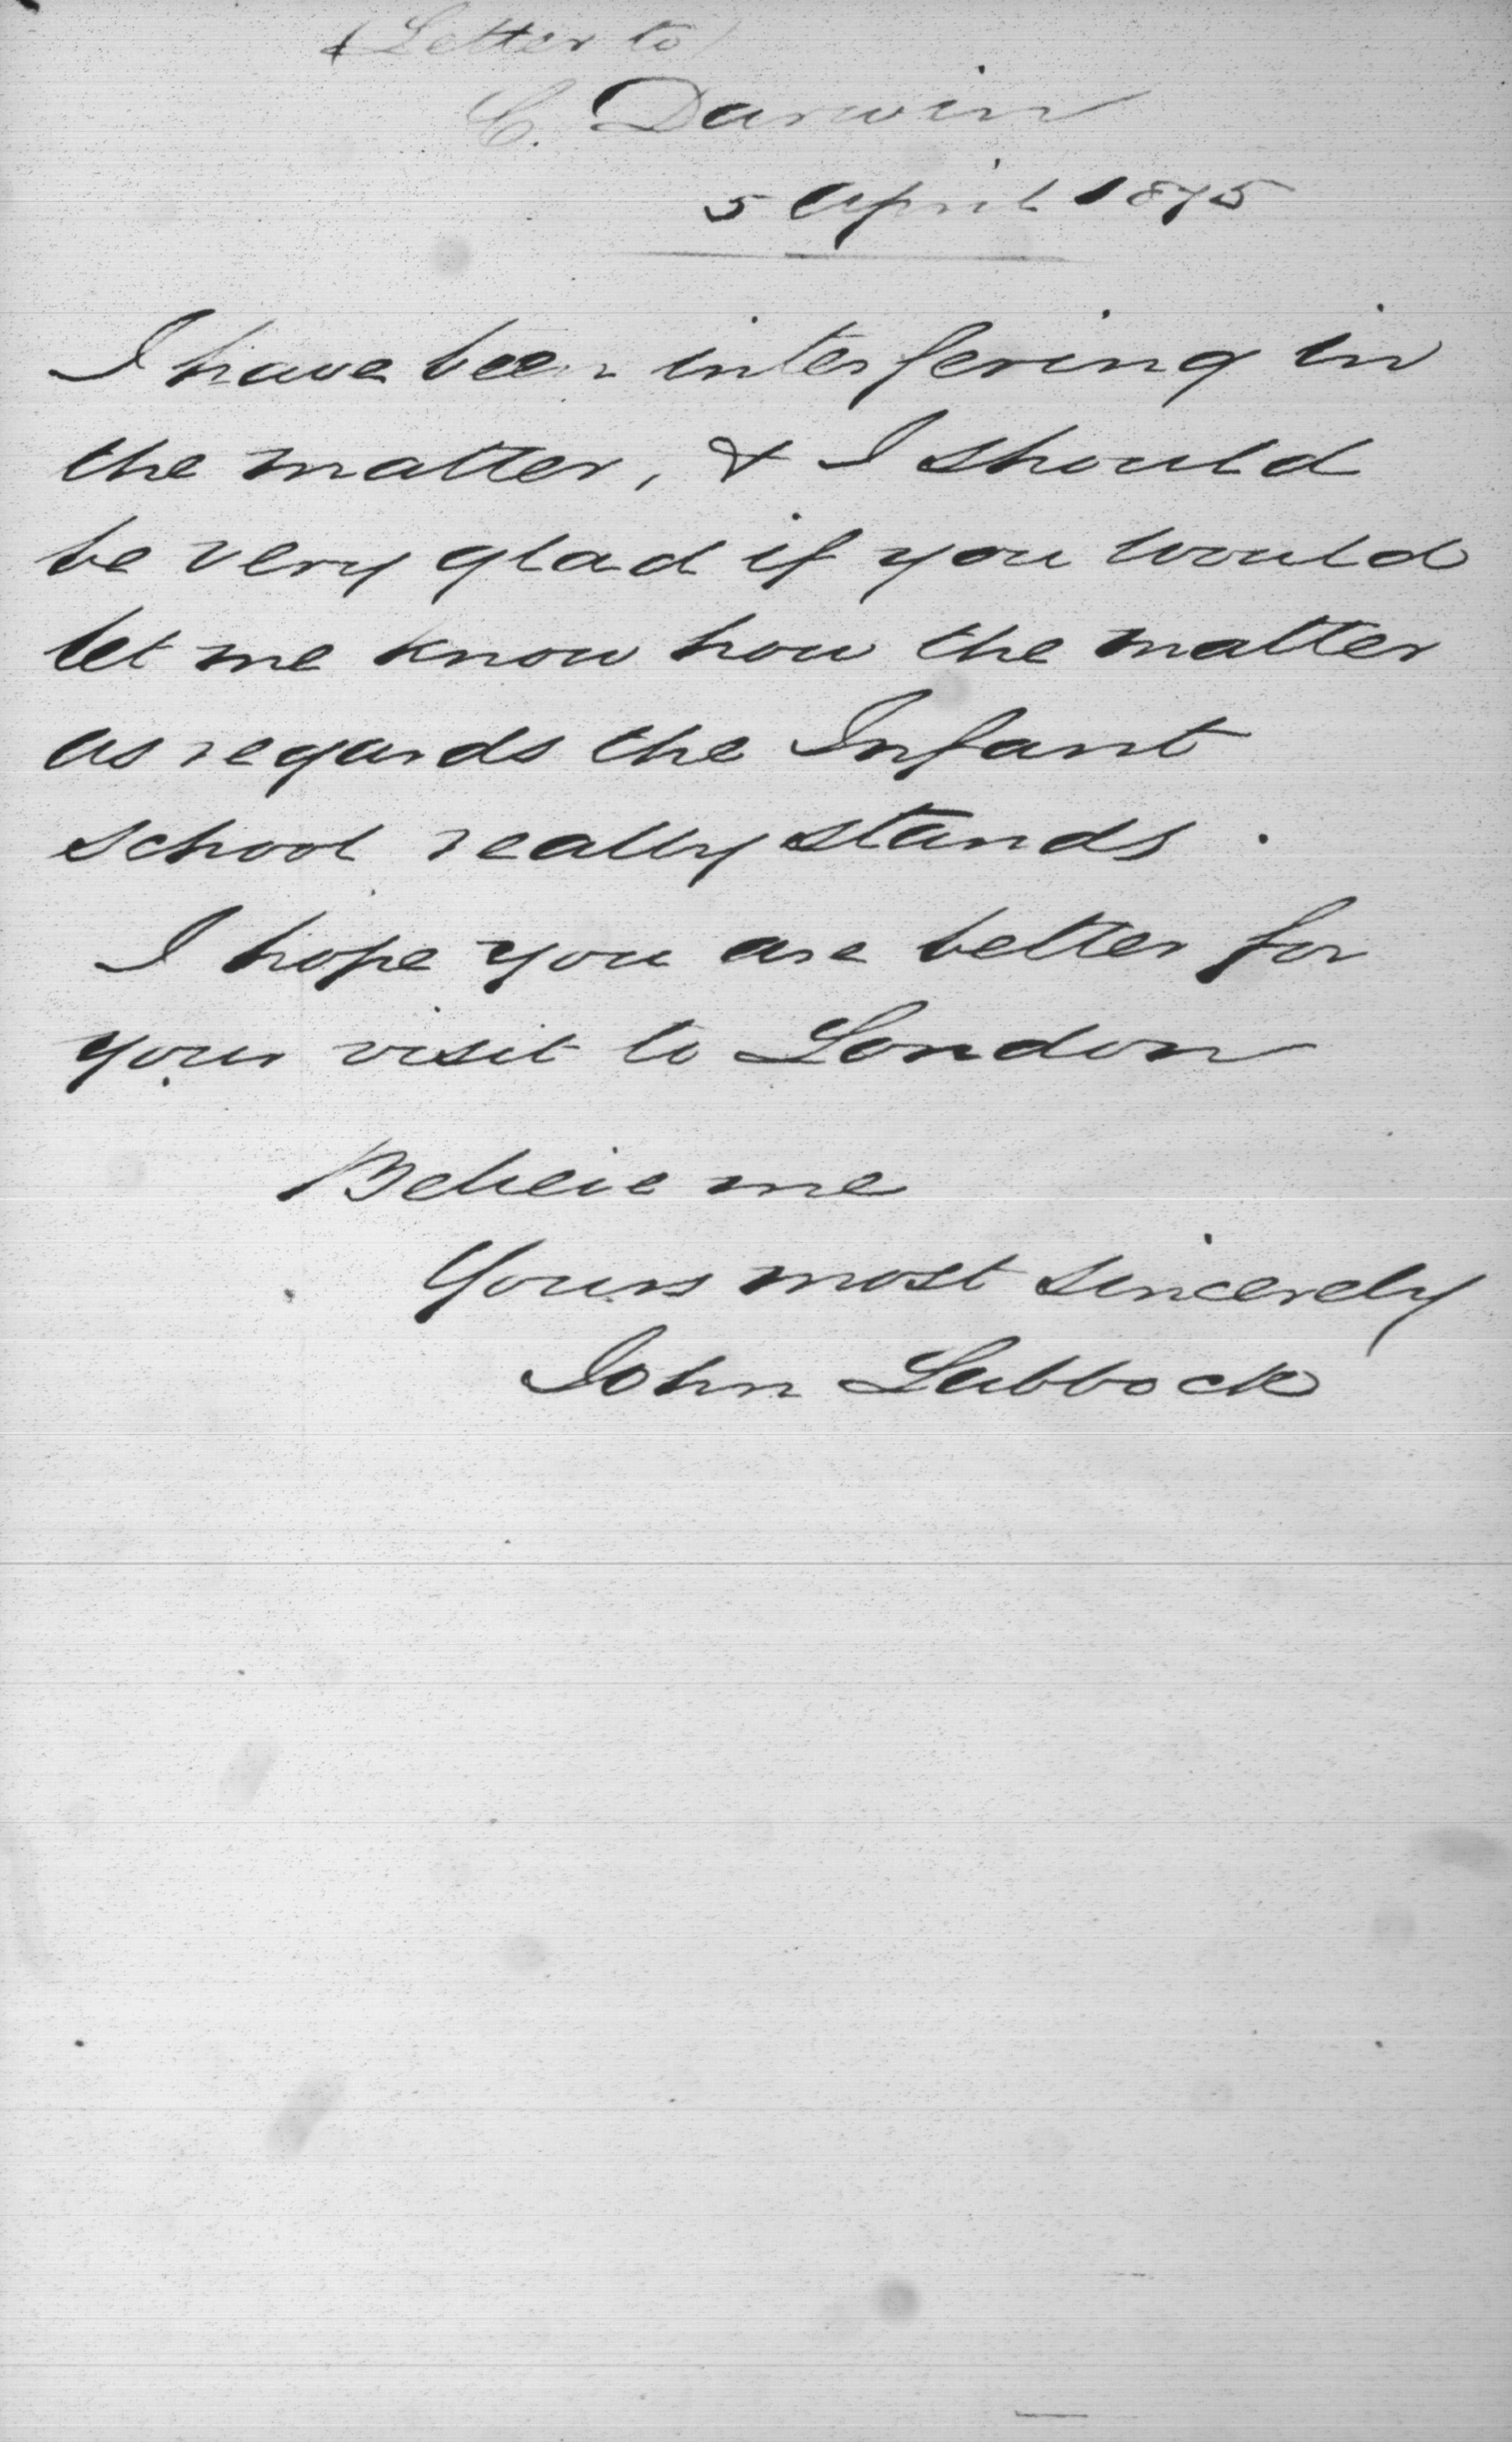 (Letter to)
C. Darwin
5 April 1875
I have been interfering in
the matter, & I should
be very glad if you would
let me know how the matter
as regards the Infant
school really stands.
I hope you are better for
your visit to London
Believe me
Yours most sincerely
John Lubbock